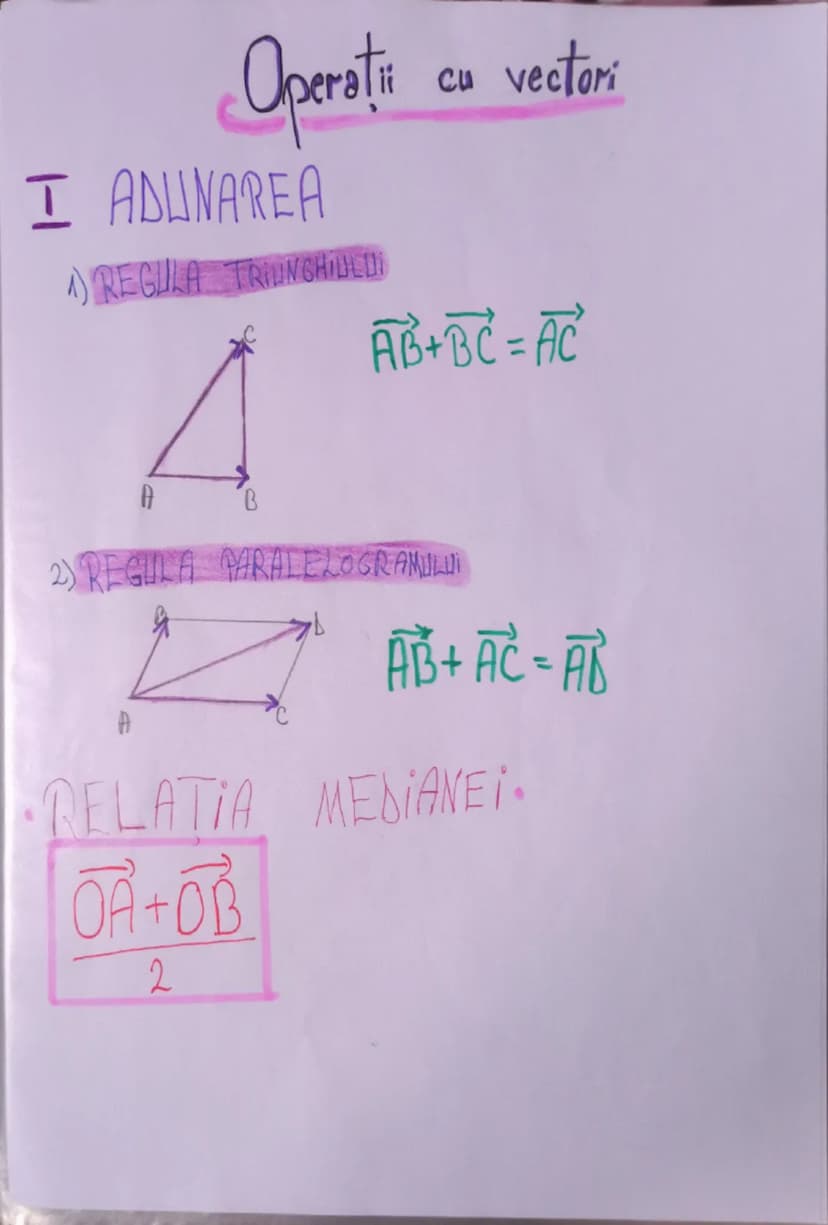 Operații cu vectori
I ADUNAREA
1) REGULA TRIUNGHIULUI
C
AB+BC=AC
A B
2) REGULA PARALELOGRAMULUI
B D
AB+AC=AD
A C
•RELAȚIA MEDIANEI•
OA+OB
2